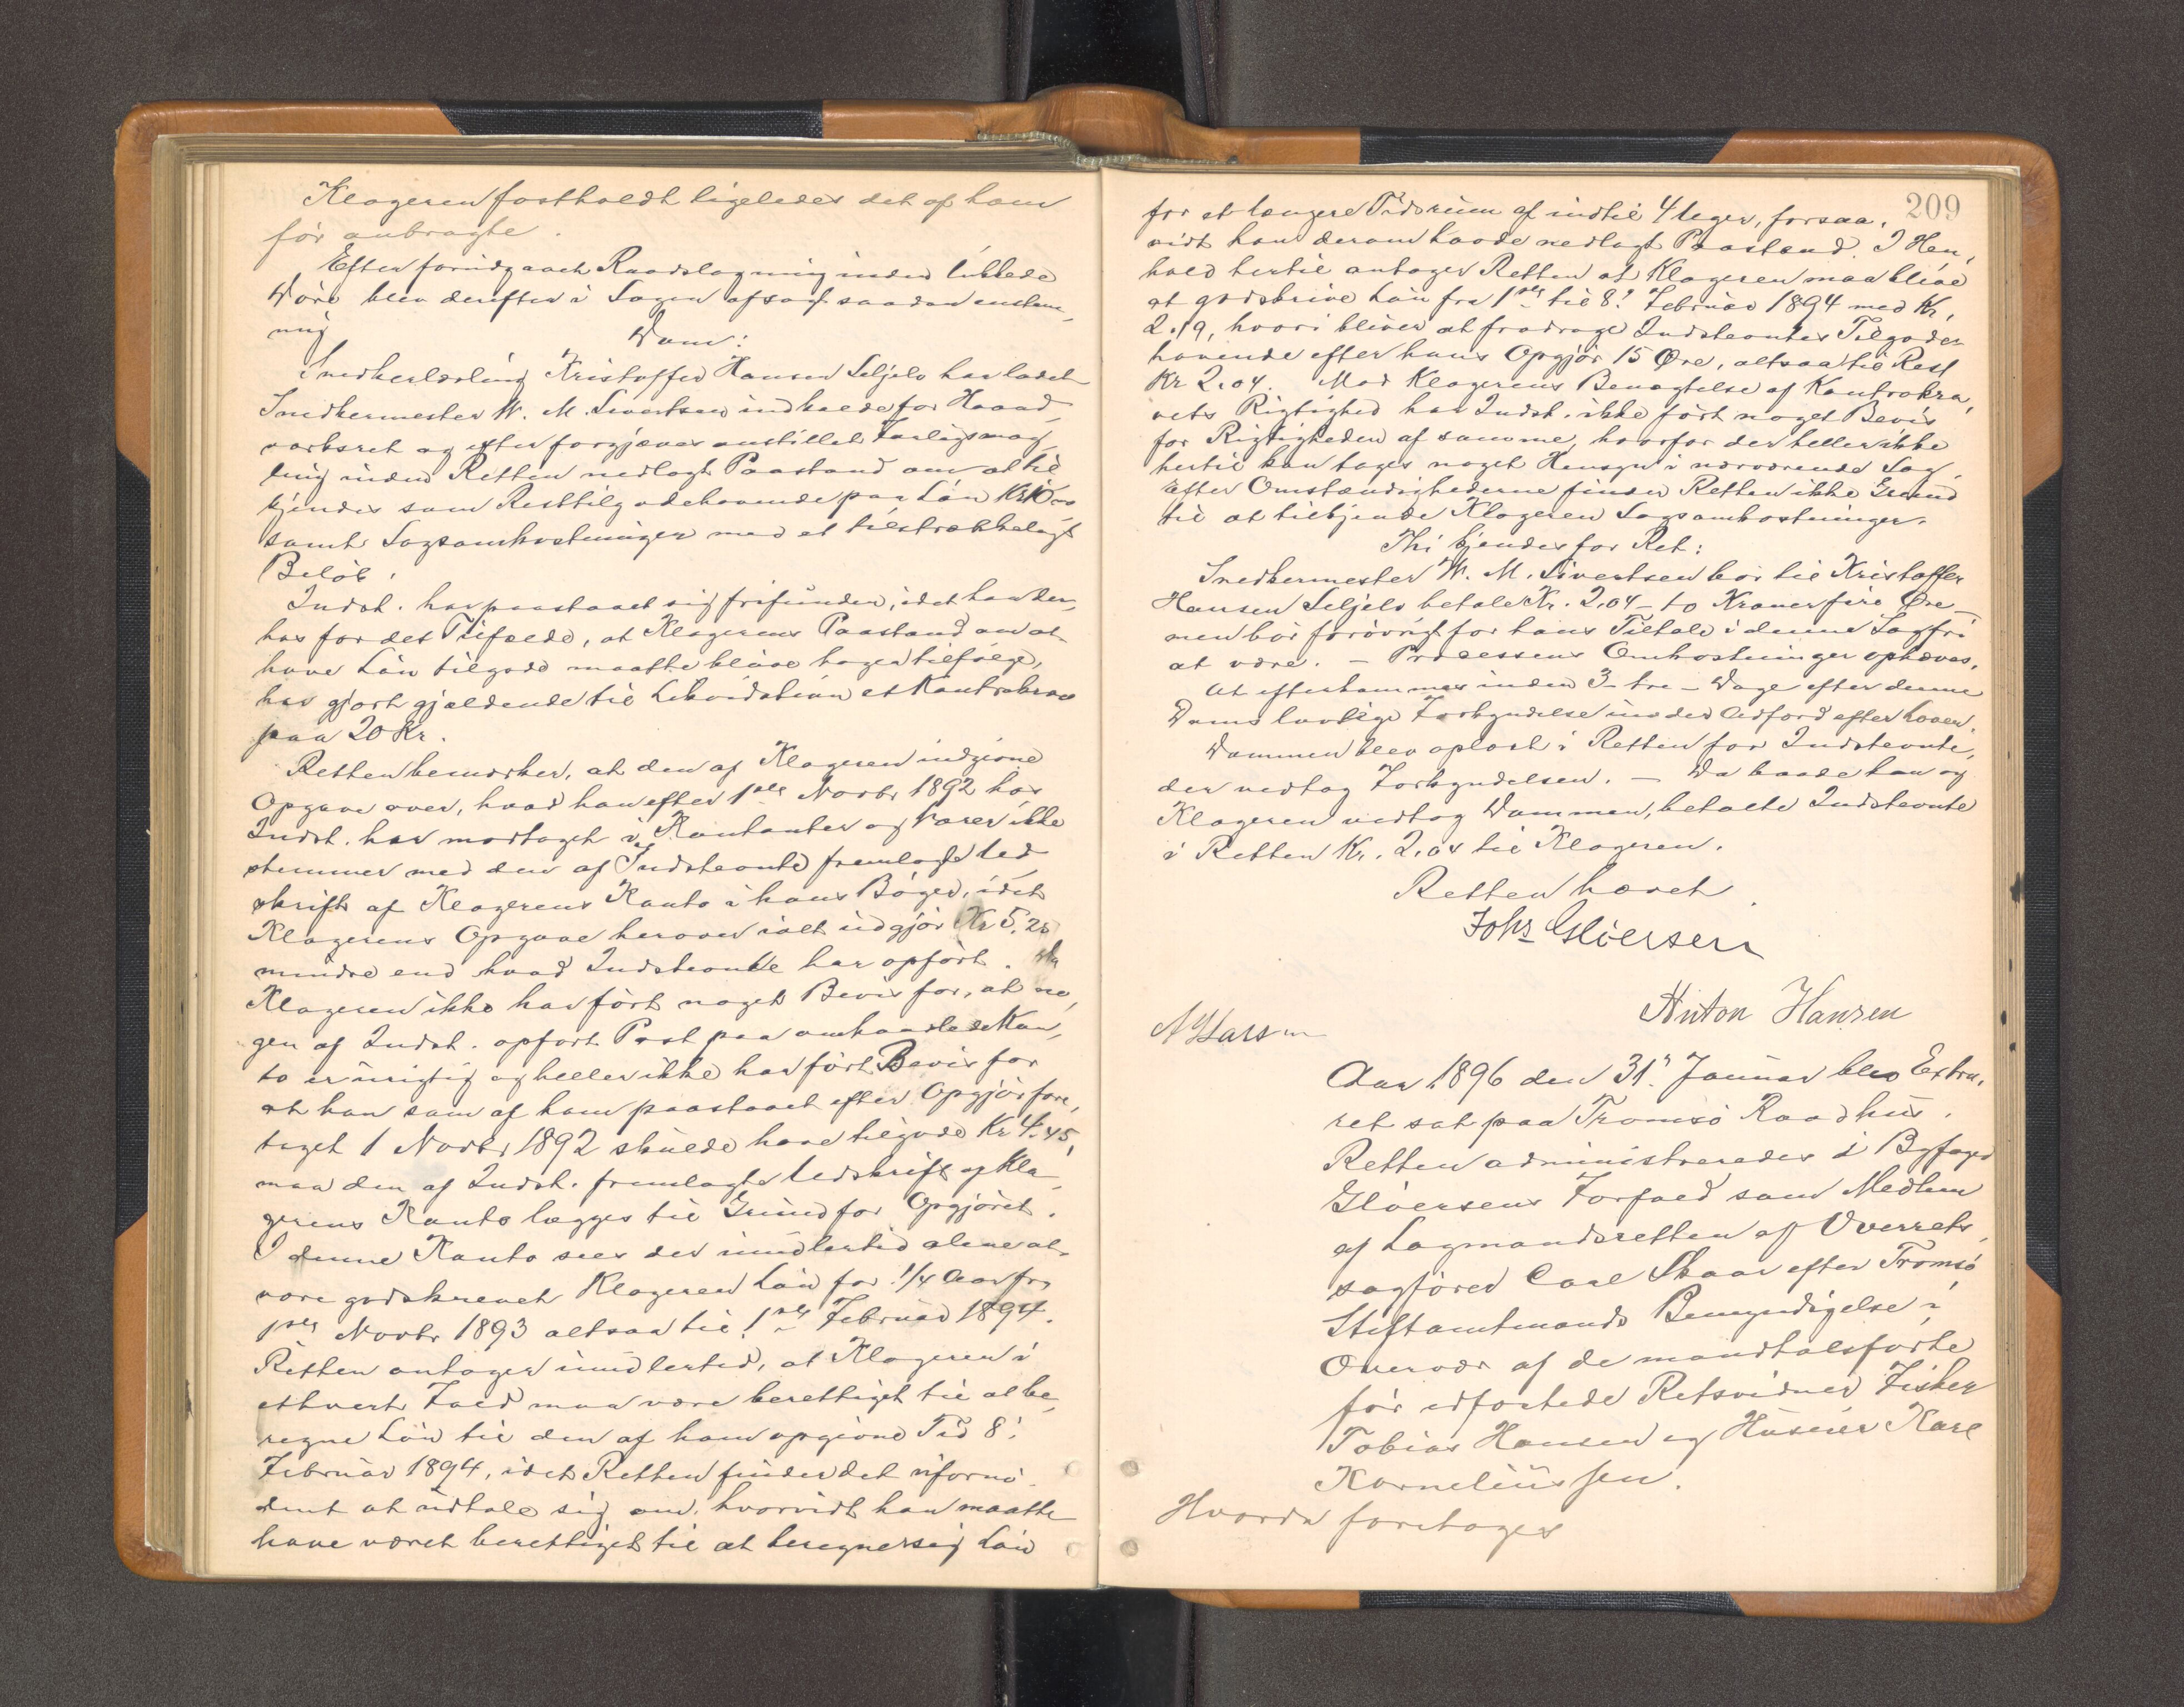 Klageren fastholdt ligeledes det af ham
før anbragte.
Efter forudgaaet Raadslagning inden lukkede
Døre blev derefter i Sagen afsagt saadan enstem-
mig
Dom:
Snedkerlærling Kristoffer Hansen Seljelv har ladet
Snedkermester W. M. Sivertsen indkalde for Haand-
værksret og efter forgjæves anstillet Forligsmæg-
ling inden Retten nedlagt Paastand om at til-
kjendes som Resttilgodehavende paa Løn Kr
samt Sagsomkostninger med et tilstrækkeligt
Beløb.
Indst. har paastaaet sig frifunden, idet han der-
hos for det Tilfælde, at Klagerens Paastand om at
have Løn tilgode maatte blive tagen tilfølge,
har gjort gjældende til Likvidation et Kontrakrav
paa 20 Kr.
Retten bemærker, at den af Klageren indgivne
Opgave over, hvad han efter 1ste Novbr 1892 hos
Indst. har modtaget i Kontanter og Varer ikke
stemmer med den af Indstevnte fremlagte Ud-
skrift af Klagerens Konto i hans Bøger, idet
Klagerens Opgave herover ialt udgjør Kr 5.25
mindre end hvad Indstevnte har opført. Da
Klageren ikke har ført noget Bevis for, at no-
gen af Indst. opført Post paa omhandlede Kon-
to er urigtig og heller ikke har ført Bevis for
at han som af ham paastaaet efter Opgjør fore-
taget 1 Novbr 1892 skulde have tilgode Kr 4.45,
maa den af Indst. fremlagte Udskrift af Kla-
gerens Konto lægges til Grund for Opgjøret.
I denne Konto sees der imidlertid alene at
være godskrevet Klageren Løn for 1/4 Aar fra
1ste Novbr 1893 altsaa til 1ste Februar 1894.
Retten antager imidlertid, at Klageren i
ethvert Fald maa være berettiget til at be-
regne Løn til den af ham opgivne Tid 8.
Februar 1894, idet Retten finder det ufornø-
dent at udtale sig om, hvorvidt han maatte
have været berettiget til at beregne sig Løn
209
for et længere Tidsrum af indtil 4 Uger, forsaa-
vidt han derom havde nedlagt Paastand. I Hen-
hold hertil antager Retten at Klageren maa blive
at godskrive Løn fra 1ste til 8. Februar 1894 med Kr.
2.19, hvori bliver at fradrage Indstevntes Tilgode-
havende efter hans Opgjør 15 Øre, altsaa til Rest
Kr 2.04. Mod Klagerens Benægtelse af Kontrakra-
vets Rigtighed har Indst. ikke ført noget Bevis
for Rigtigheden af samme, hvorfor der heller ikke
hertil kan tages noget Hensyn i nærværende Sag.
Efter Omstændighederne finder Retten ikke Grund
til at tilkjende Klageren Sagsomkostninger.
Thi kjendes for Ret:
Snedkermester W. M. Sivertsen bør til Kristoffer
Hansen Seljelv betale Kr. 2,04 – to Kroner fire Øre –
men bør forøvrigt for hans Tiltale i denne Sag fri
at være. – Processens Omkostninger ophæves.
At efterkommes inden 3 – tre – Dage efter denne
Doms lovlige Forkyndelse under Adfærd efter Loven.
Dommen blev oplæst i Retten for Indstevnte,
der vedtog Forkyndelsen. – Da baade han og
Klageren vedtog Dommen, betalte Indstevnte
i Retten Kr. 2.04 til Klageren.
Retten hævet.
Johs Gløersen
Anton Hansen
N Larsen
Aar 1896 den 31. Januar blev Extra-
ret sat paa Tromsø Raadhus.
Retten administreredes i Byfoged
Gløersens Forfald som Medlem
af Lagmandsretten af Overrets-
sagfører Carl Skaar efter Tromsø
Stiftamtmands Bemyndigelse i
Overvær af de mandtalsførte
før edfæstede Retsvidner, Fisker
Tobias Hansen og Huseier Karl
Korneliussen.
Hvorda foretoges